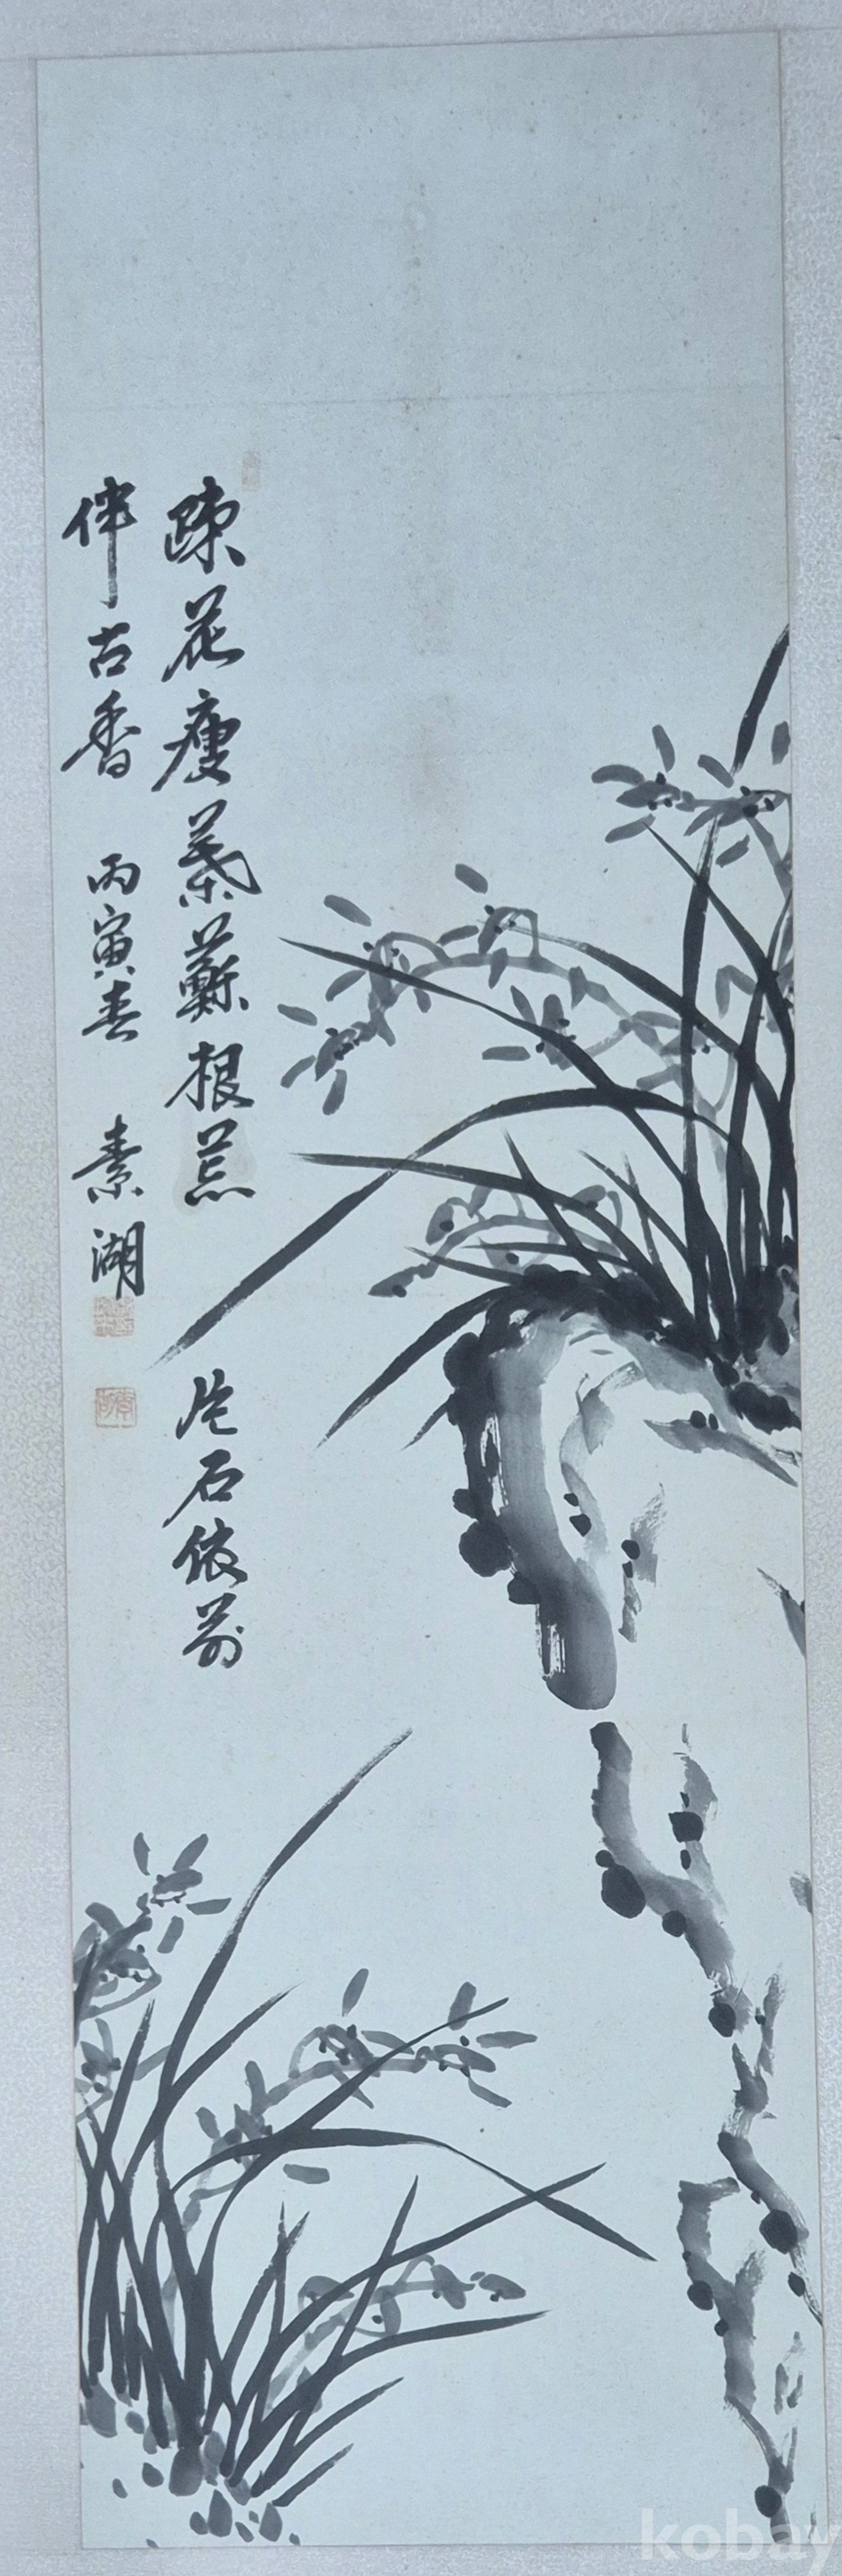 疎花瘦葉蘚根荒 片石依前
伴古香 丙寅春 素湖
kobay